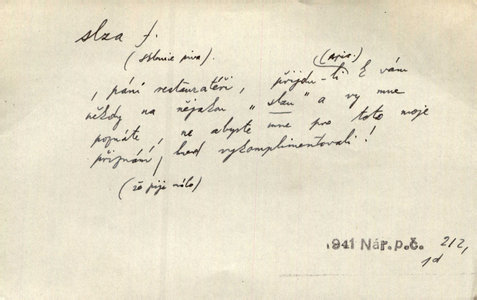 slza f.
(sklenice piva) (opis.)
, páni restauratéři, přijdu-li k vám
někdy na nějakou „slzu" a vy mne
poznáte, ne abyste mne pro toto moje
přiznání, hned vykomplimentovali!
(že pije málo)
1941 Nár. p. č. 212,
1d